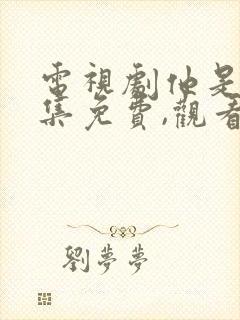 電視劇仙是
集免費,觀看
劉夢夢